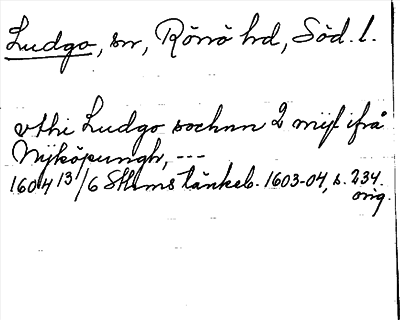 Ludgo, sn, Rönö hd, Söd. l.
vthi Ludgo sochnn 2 mijl ifrå
Nyköpungh, ---
1604 13/6 Sthms tänkeb. 1603-04, s. 234.
orig.